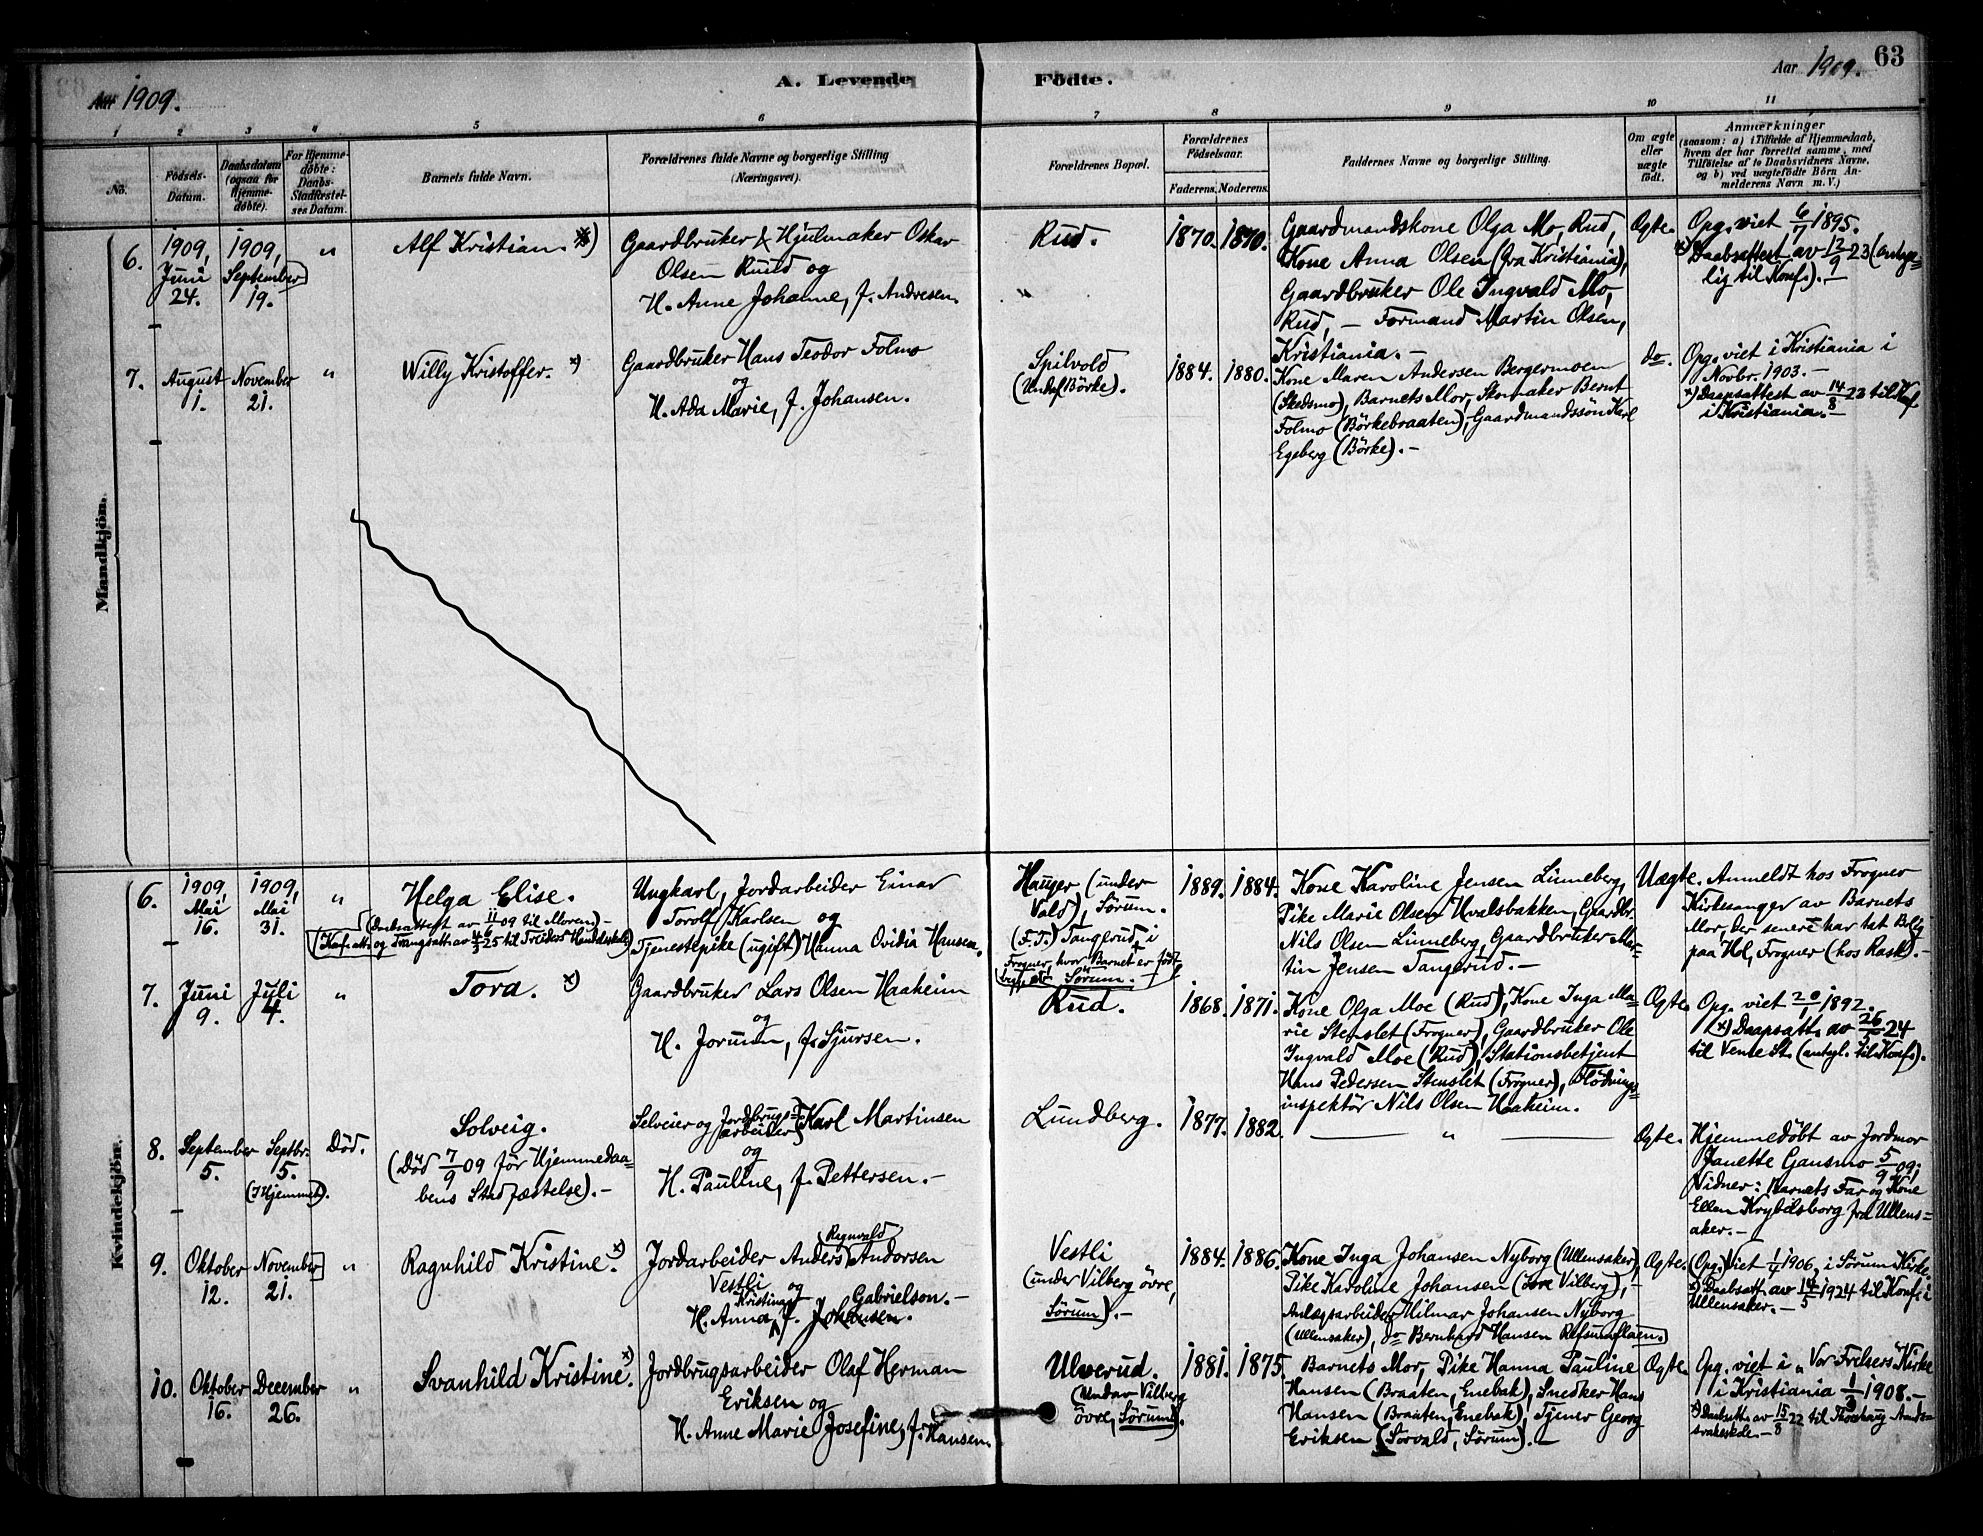 Aar 1909.
A. Levende Födte.
Aar 1909.
63
1 2 3 4 5 6 7 8 9 10 11
No.
Födsels-
Datum.
Daabsdatum
(ogsaa for
Hjemme-
døbte).
For Hjemme-
døbte:
Daabs-
Stadfæstel-
ses Datum.
Barnets fulde Navn.
Forældrenes fulde Navne og borgerlige Stilling
(Næringsvei).
Forældrenes Bopæl.
Forældrenes
Födselsaar.
Faderens. Moderens.
Faddernes Navne og borgerlige Stilling.
Om ægte
eller
uægte
født.
Anmærkninger
(saasom: a) i Tilfælde af Hjemmedaab,
hvem der har forrettet samme, med
Tilføielse af to Daabsvidners Navne,
og b) ved uægtefødte Børn An-
melderens Navn m. V.)
Mandkjön.
6.
1909,
Juni
24.
1909,
September
19.
"
Alf Kristian. x)
Gaardbruker & Hjulmaker Oskar
Olsen Ruud og
H. Anne Johanne, f. Andresen.
Rud.
"
1870.
1870.
Gaardmandskone Olga Mo, Rud,
Kone Anna Olsen (fra Kristiania),
Gaardbruker Ole Ingvald Mo,
Rud, — Formand Martin Olsen,
Kristiania. —
Ægte.
Opg. viet 6/7 1895.
x) Daabsattest av 12/9 23 (antage-
lig til Konf.). —
7.
August
1.
November
21.
"
Willy Kristoffer. x)
Gaardbruker Hans Teodor Folmo
og
H. Ada Marie, f. Johansen.
Spilvold
(Under Börke).
1884.
1880.
Kone Maren Andersen Bergermoen
(Skedsmo), Barnets Mor, Skomaker Bernt
Folmo (Börkebraaten), Gaardmandssön Karl
Egeberg (Börke). —
do.
Opg. viet i Kristiania i
Novbr. 1903. —
x) Daapsattest av 14/8 23 til Konf.
i Kristiania. —
Kvindekjön.
6.
1909,
Mai
16.
1909,
Mai
31.
"
Helga Elise.
(Daabsattest av 11/6 09 til Moren) —
Ungkarl, Jordarbeider Einar
Torolf Karlsen og
Tjenestepike (ugift) Hanna Ovidia Hansen.
Hauger (under
Vald), Sörum.
(F. T.) Tangerud i
Frogner, hvor Barnet er født
Sörum. —
1889.
1884.
Kone Karoline Jensen Linneberg,
Pike Marie Olsen Hvalsbakken, Gaardbr.
Nils Olsen Linneberg, Gaardbruker Mar-
tin Jensen Tangerud. —
Uægte.
Anmeldt hos Frogner
Kirkesanger av Barnets
Mor, Der senere har tat Bolig
paa Hol, Frogner (hos Rask). —
7.
Juni
9.
Juli
4.
"
Tora. x)
Gaardbruker Lars Olsen Haaheim
og
H. Jorunn, f. Sjursen.
Rud.
1868.
1871.
Kone Olga Moe (Rud), Kone Inga Ma-
rie Stenslet (Frogner), Gaardbruker Ole
Ingvald Moe (Rud), Stationsbetjent
Hans Pedersen Stenslet (Frogner), Flödnings-
inspektör Nils Olsen Haaheim.
Ægte.
Opg. viet 20/1 1892.
(x) Daapsatt. av 26/5 24
til Vente St. (antagl. til Konf.).
8.
September
5.
Septbr.
5.
(I Hjemmet).
Död.
Solveig.
(Död 7/9 09 för Hjemmedaa-
bens Stadfæstelse). —
Selveier og Jordbrugs-
arbeider Karl Martinsen
og
H. Pauline, f. Pettersen. —
Lundberg.
1877.
1882.
— " —
Ægte.
Hjemmedøbt av Jordmor
Janette Gansmo 5/9 09;
Vidner: Barnets Far og Kone
Ellen Krybilsborg fra Ullens-
aker. —
9.
Oktober
12.
November
21.
"
Ragnhild Kristine. x)
Jordarbeider Anders Regnvald Andorsen
Vestli og
H. Anna Kristina, f. Johansen. Gabrielson. —
Vestli
(under Vilberg övre,
Sörum). —
1884.
1886.
Kone Inga Johansen Nyborg (Ullensaker),
Pike Karoline Johansen (övre Vilberg), —
Anlægsarbeider Hilmar Johansen Nyborg
(Ullensaker), do Bernhard Hansen
Ægte.
(Opg.) Viet 1/4 1906, i Sörum Kirke.
x) Daabsatt. av 14/5 1924 til Konf. i
Ullensaker. —
10.
Oktober
16.
December
26.
"
Svanhild Kristine. x)
Jordbrugsarbeider Olaf Herman
Eriksen og
H. Anne Marie Josefine, f. Hansen.
Ulverud.
(Under Vilberg
övre, Sörum).
1881.
1875.
Barnets Mor, Pike Hanna Pauline
Hansen (Braaten, Enebak), Snedker Hans
Hansen (Braaten, Enebak), Tjener Georg
Eriksen (Sörvald, Sörum). —
Ægte.
Opg. viet i "Vor Frelsers" Kirke
i Kristiania 1/3 1908. —
x) Daabsatt. av 15/8 22 til